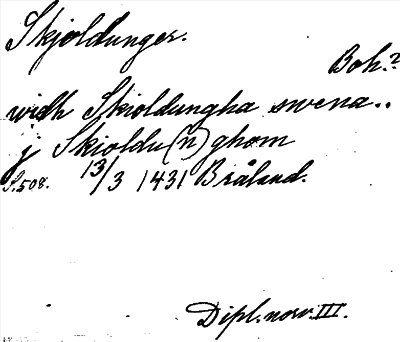 Skjoldunger.
Boh.?
widh Skioldungha swena..
j Skioldu(n)ghom
S.508. 13/3 1431 Bråland.
Dipl. norv. III.